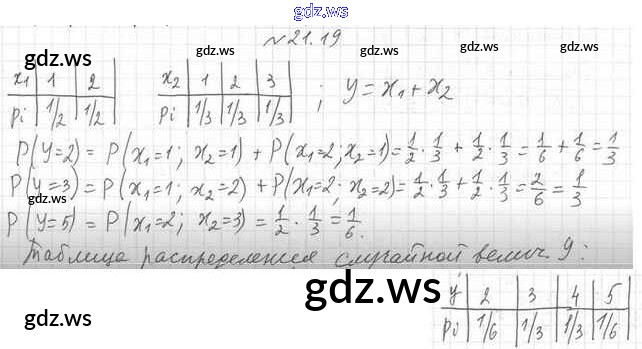 gdz.ws
№21.19
gdz.ws gdz.ws gdz.ws gdz.ws
x₁ | 1 | 2
pi | 1/2 | 1/2
x₂ | 1 | 2 | 3
pi | 1/3 | 1/3 | 1/3
; y = x₁ + x₂
P(y=2) = P(x₁=1; x₂=1) + P(x₁=2; x₂=1) = 1/2 · 1/3 + 1/2 · 1/3 = 1/6 + 1/6 = 1/3
P(y=3) = P(x₁=1; x₂=2) + P(x₁=2; x₂=2) = 1/2 · 1/3 + 1/2 · 1/3 = 2/6 = 1/3
gdz.ws gdz.ws gdz.ws
P(y=5) = P(x₁=2; x₂=3) = 1/2 · 1/3 = 1/6.
Таблица распределения случайной велич. y:
gdz.ws
gdz.ws
y | 2 | 3 | 4 | 5
pi | 1/6 | 1/3 | 1/3 | 1/6
gdz.ws
gdz.ws